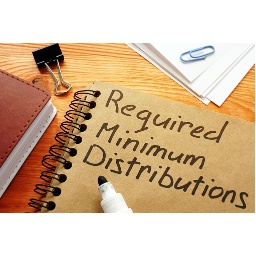 Required
Minimum
Distributions